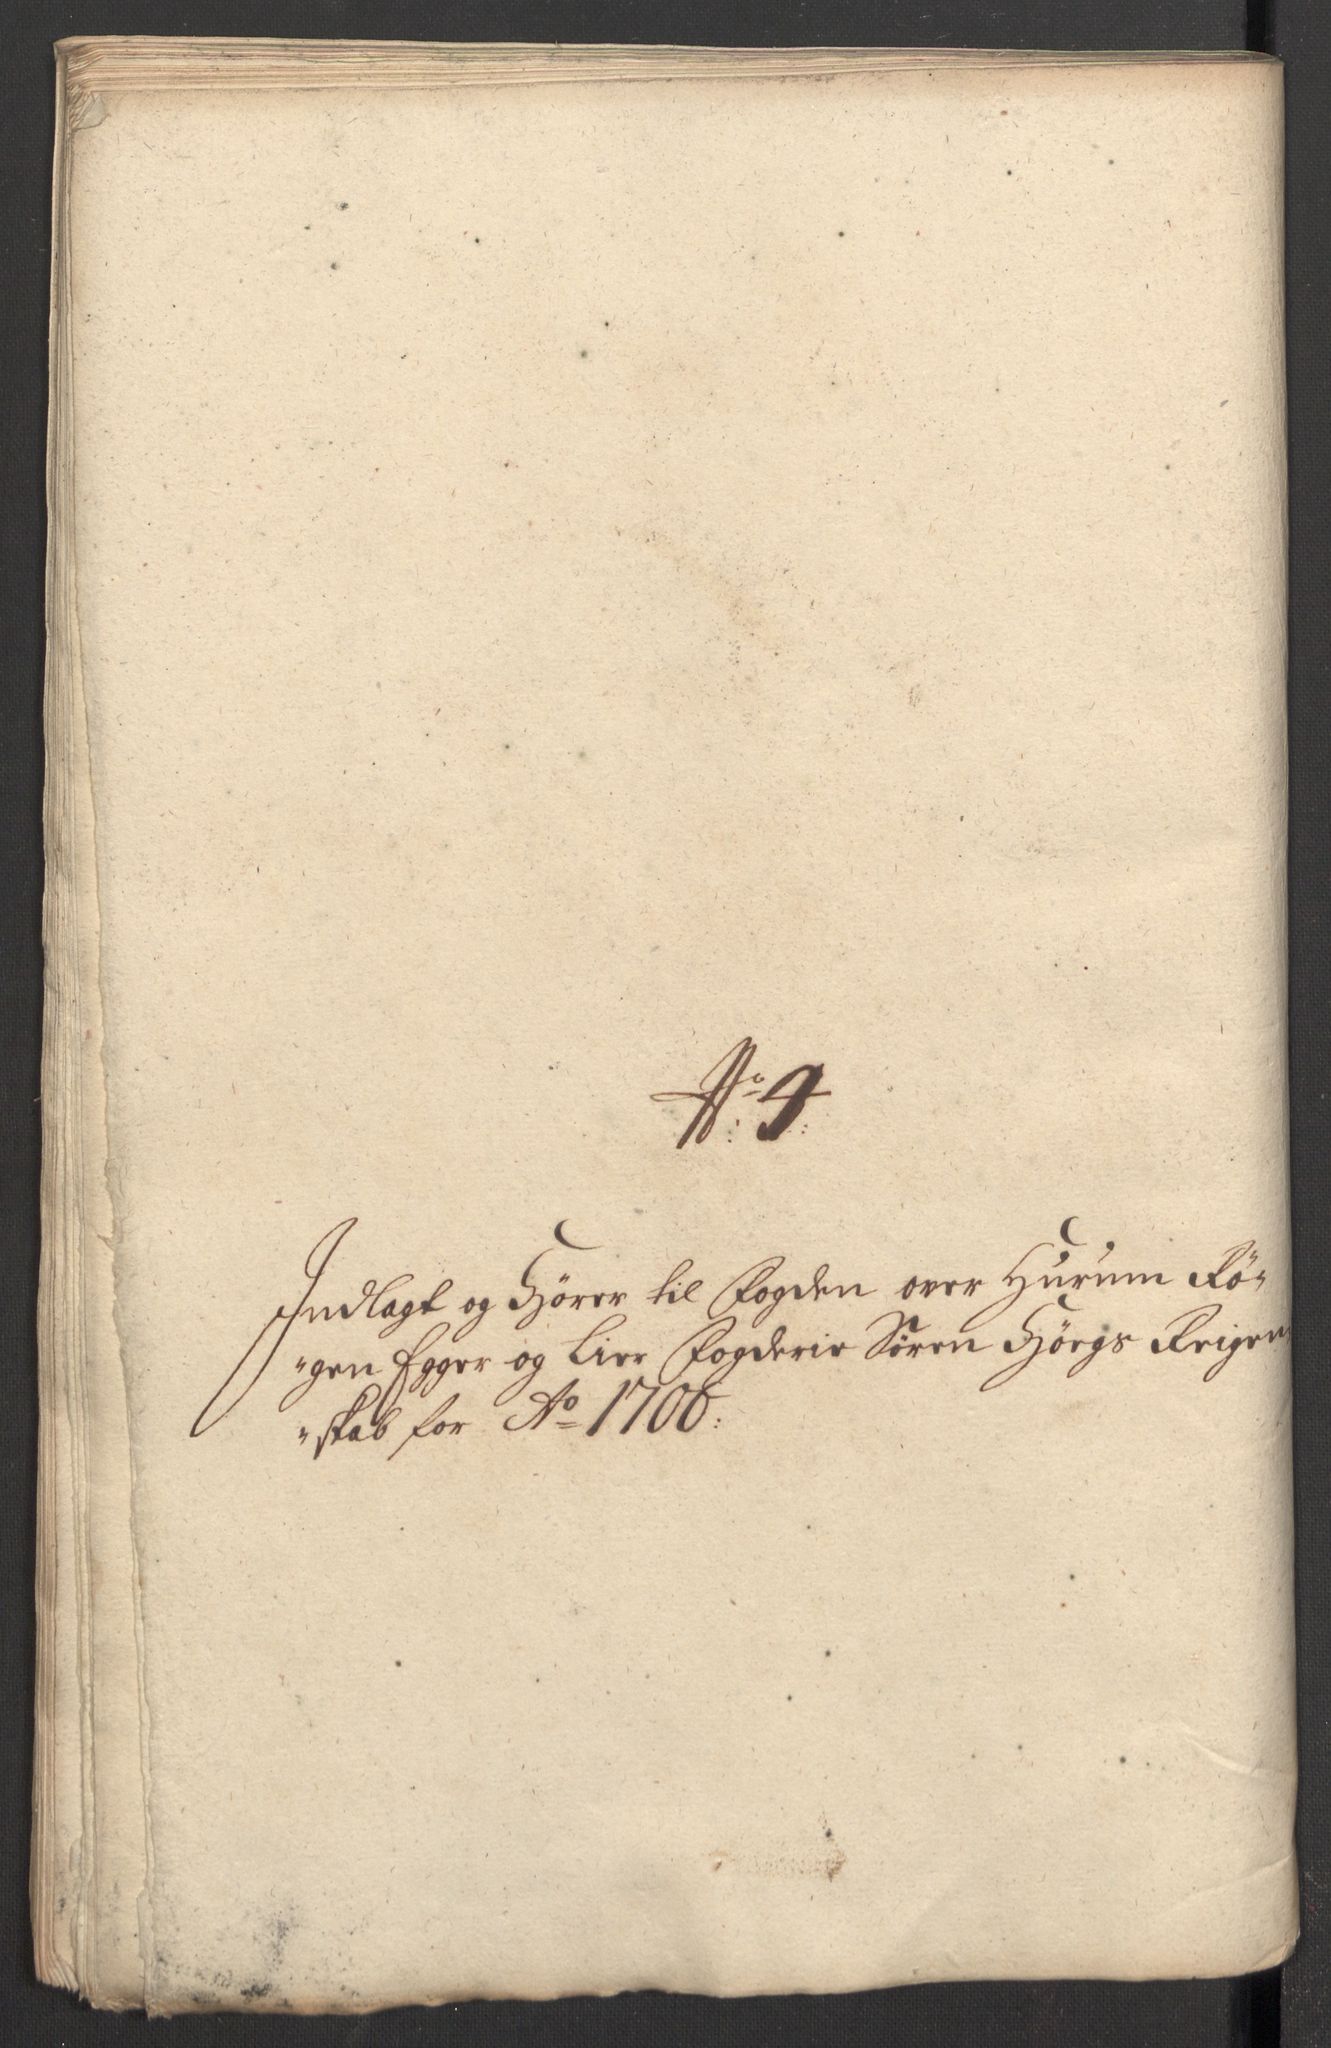 No: 9:
Indlagt og Hörer til Fogden over Hurum Rö-
"gen Egger og Lier Fogderie Sören Hörgs Reigen"
"skab for Ao 1706: